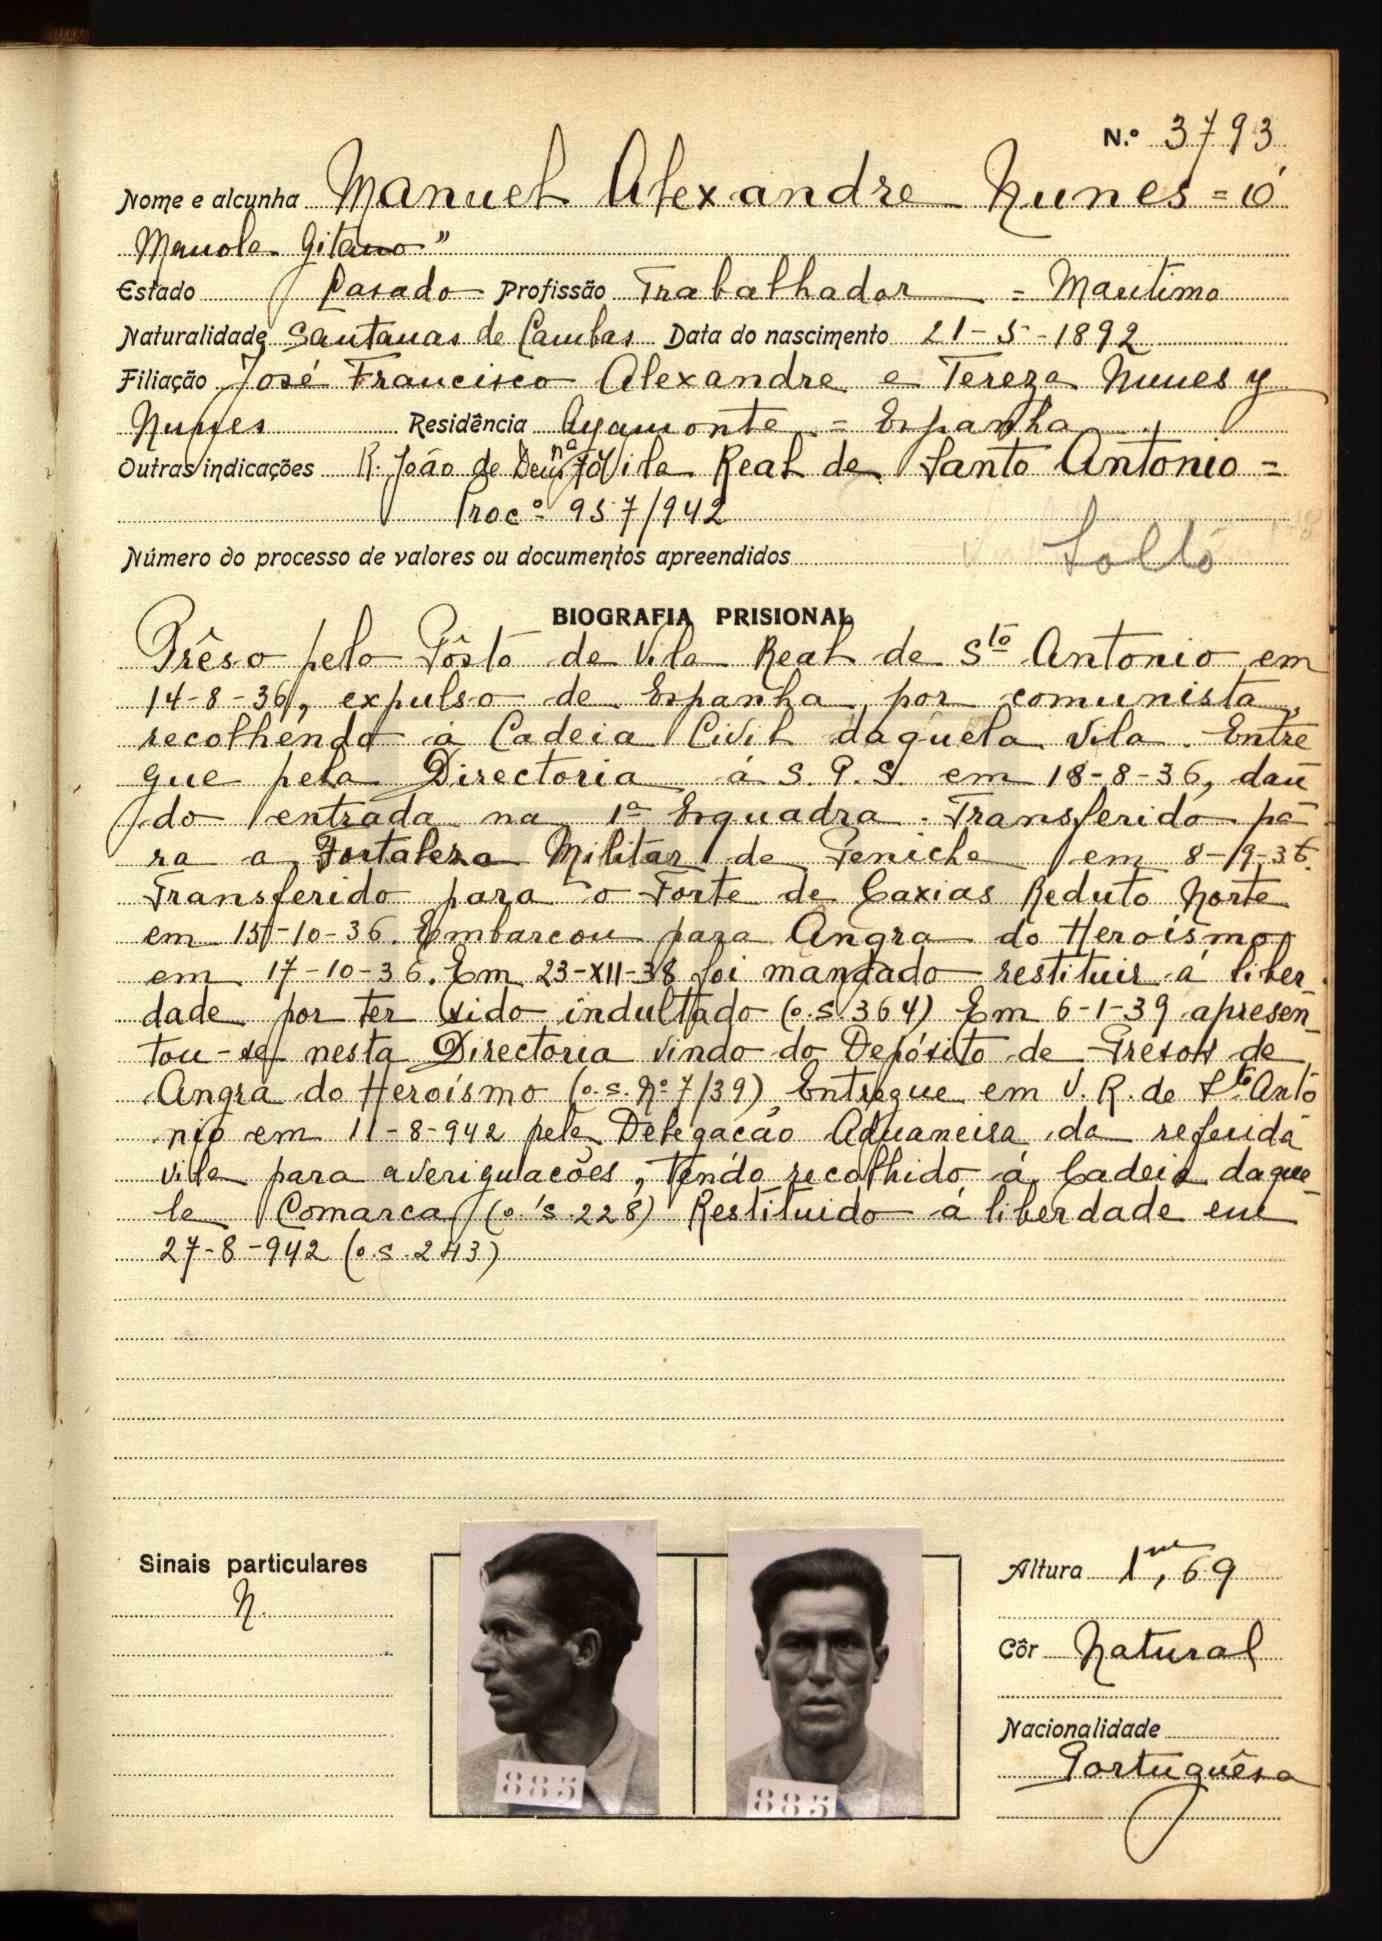 N.º 3793
Nome e alcunha Manuel Alexandre Nunes = "O
Manolo Gitano"
Estado Casado Profissão Trabalhador = Maritimo
Naturalidade Santanas de Cambas Data do nascimento 21-5-1892
Filiação José Francisco Alexandre e Tereza Nunes y
Nunes Residência Ayamonte = Espanha
Outras indicações R. João de Deus nº Vila Real de Santo Antonio =
Procº 957/942
Número do processo de valores ou documentos apreendidos Soltó
BIOGRAFIA PRISIONAL
Prêso pelo Pôsto de Vila Real de Sto Antonio em
14-8-36, expulso de Espanha, por comunista,
recolhendo á Cadeia Civil daquela Vila. Entre
gue pela Directoria á S.P.S. em 18-8-36, dan
do entrada na 1ª Esquadra. Transferido pa
ra a Fortaleza Militar de Peniche em 8-9-36.
Transferido para o Forte de Caxias Reduto Norte
em 15-10-36. Embarcou para Angra do Heroísmo
em 17-10-36. Em 23-XII-38 foi mandado restituir á liber
dade por ter sido indultado (o.s. 364) Em 6-1-39 apresen
tou-se nesta Directoria vindo do Depósito de Presos de
Angra do Heroísmo (o.s. Nº 7/39) Entregue em V.R. de Sto. Antó
nio em 11-8-942 pela Delegacão Aduaneira da referida
vila para averiguacões, tendo recolhido á Cadeia daque-
la Comarca (o.s. 228) Restituido á liberdade em
27-8-942 (o.s. 243)
Sinais particulares
N.
885
885
Altura 1m,69
Côr Natural
Nacionalidade
Portuguêsa